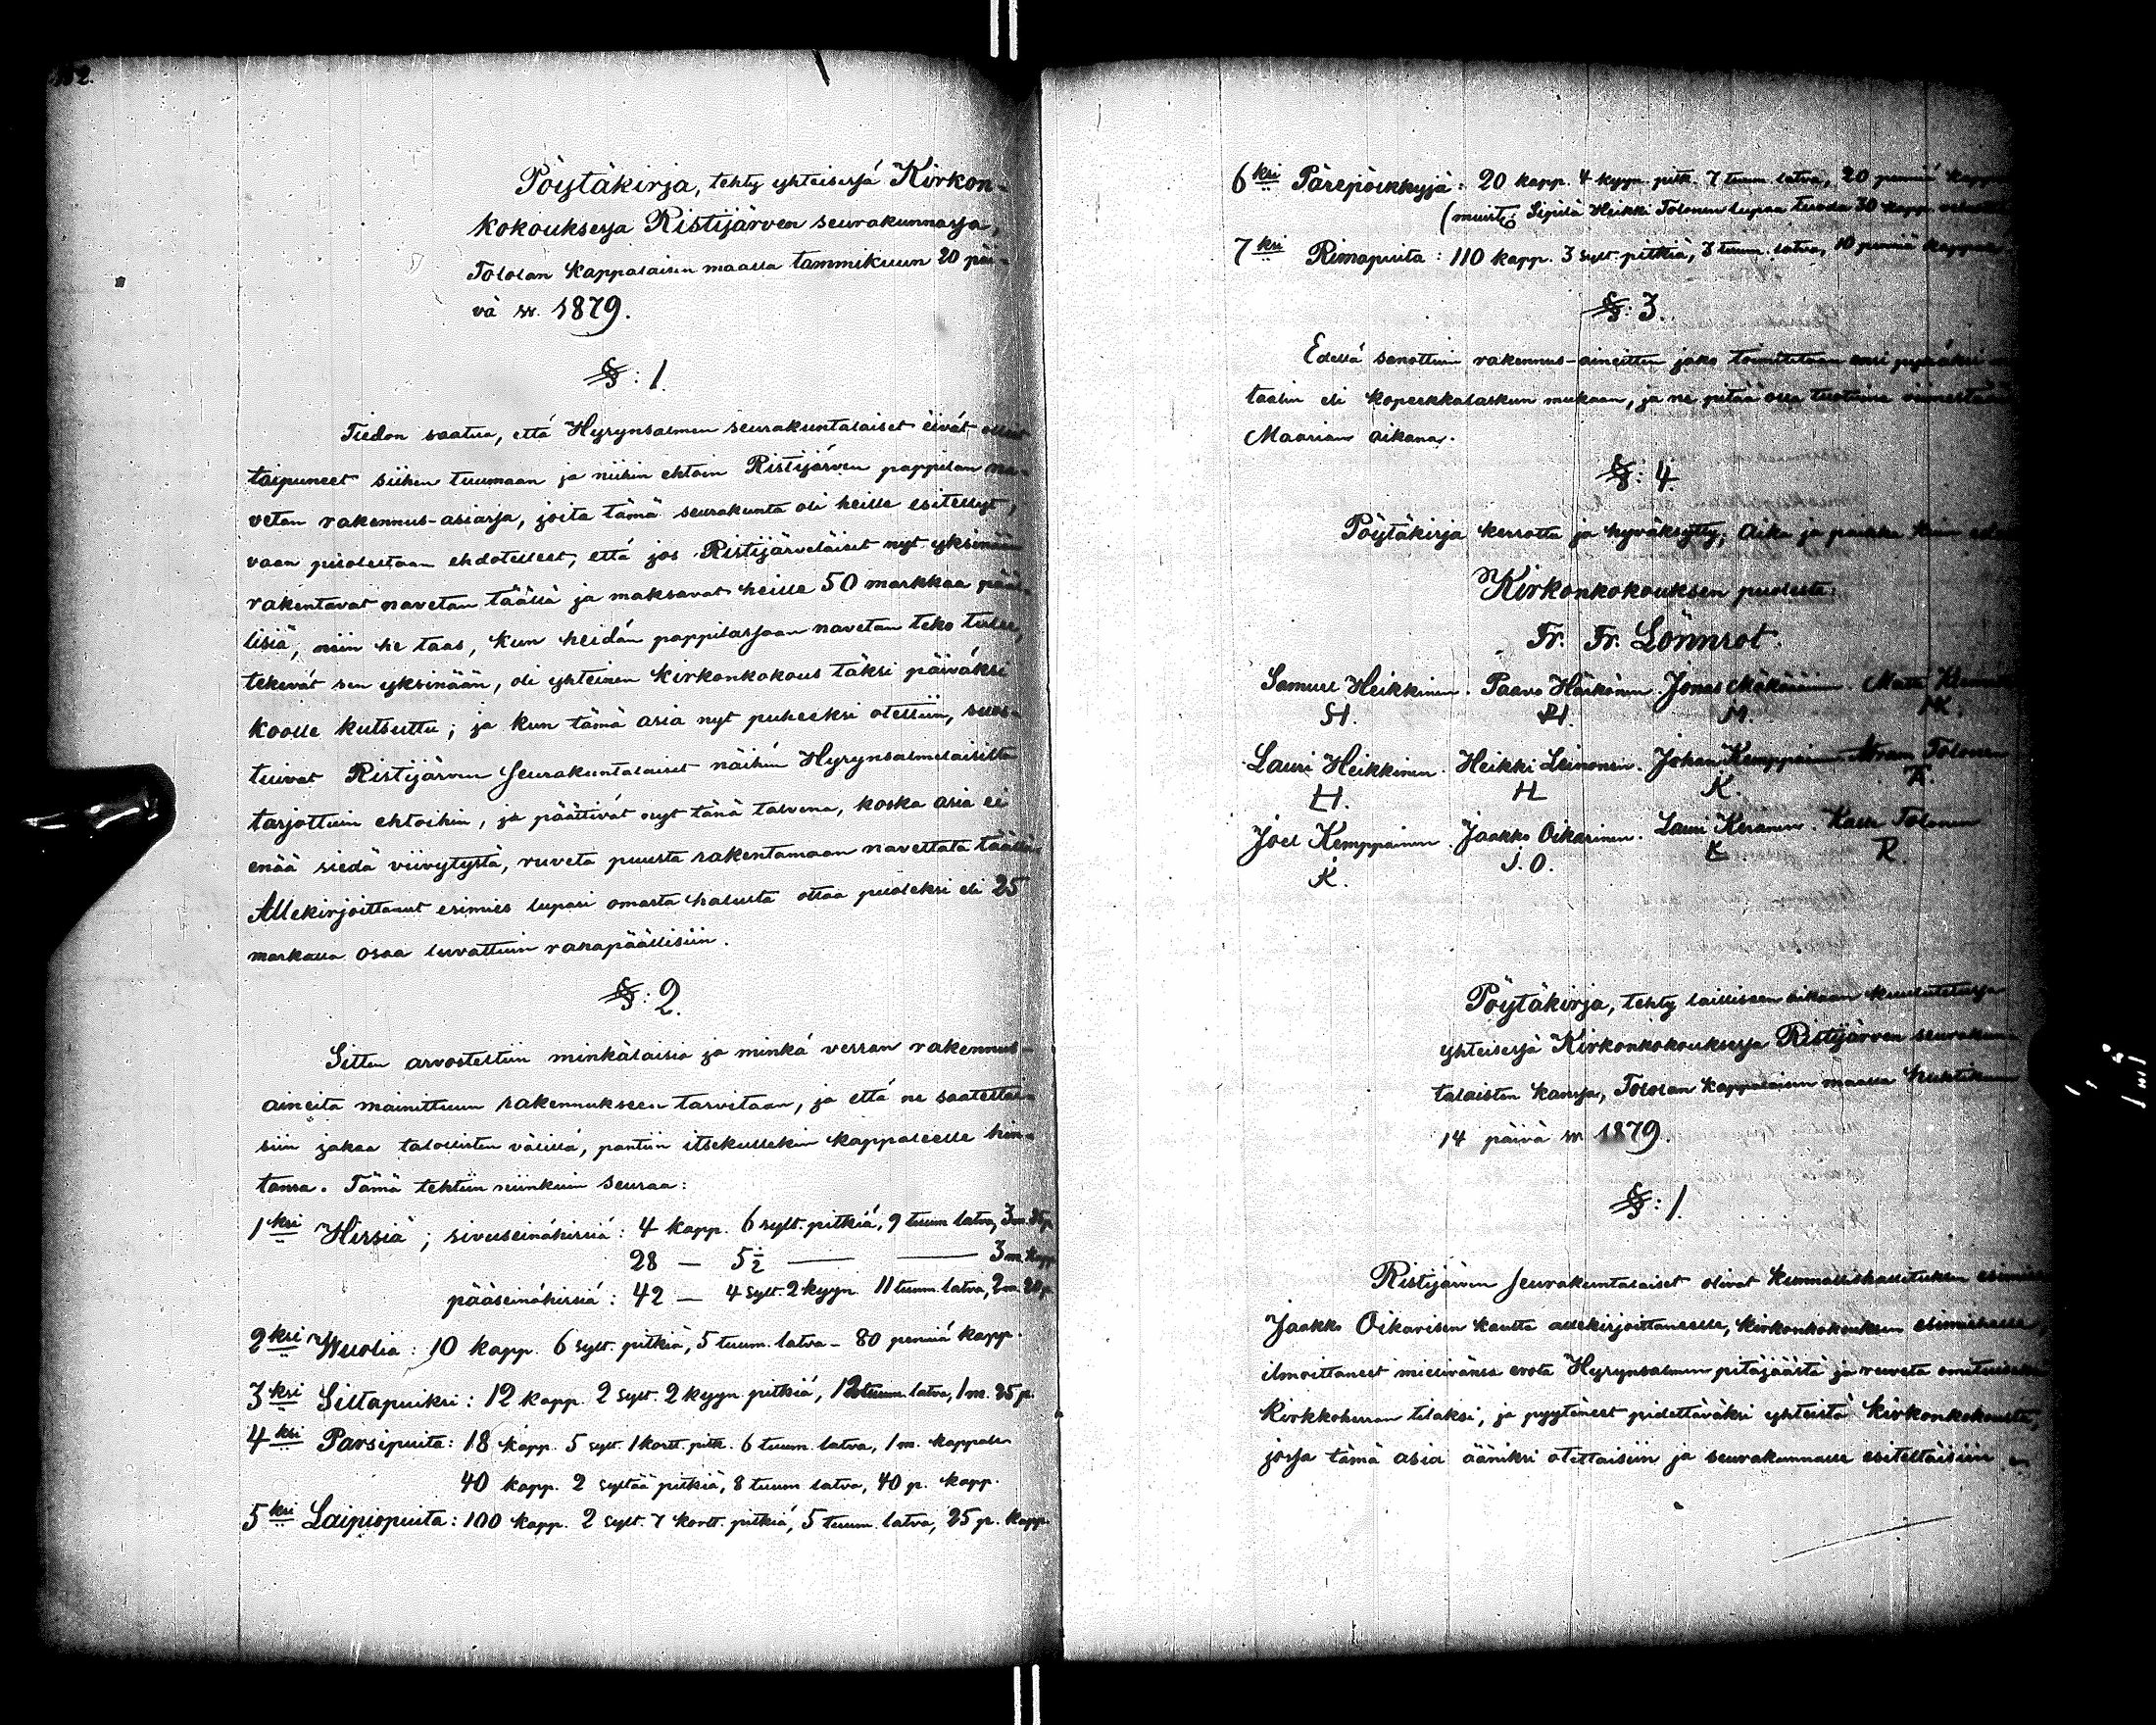 Pöytäkirja, tehty yhteisessä Kirkon-
kokouksessa Ristijärven seurakunnassa,
Tololan kappalaisen maalla tammikuun 20 päi-
vä v. 1879.
§: 1.
Tiedon saatua, että Hyrynsalmen seurakuntalaiset eivät olleet
taipuneet siihen tuumaan ja niihin ehtoin Ristijärven pappilan na-
vetan rakennus-asiassa, joita tämä seurakunta oli heille esitellyt,
vaan puolestaan ehdotelleet, että jos Ristijärveläiset nyt yksinään
rakentavat navetan täällä ja maksavat heille 50 markkaa pääl-
lisiä, niin he taas, kun heidän pappilassaan navetan teko tulee,
tekevät sen yksinään, oli yhteinen kirkonkokous täksi päiväksi
koolle kutsuttu; ja kun tämä asia nyt puheeksi otettiin, suos-
tuivat Ristijärven Seurakuntalaiset näihin Hyrynsalmelaisilta
tarjottuin ehtoihin, ja päättivät nyt tänä talvena, koska asia ei
enää siedä viivytystä, ruveta puusta rakentamaan navettata täällä.
Allekirjoittanut esimies lupasi omasta halusta ottaa puoleksi eli 25
markalla osaa luvattuin rahapäällisiin.
§: 2.
Sitten arvosteltiin minkälaisia ja minkä verran rakennus-
aineita mainittuun rakennukseen tarvitaan, ja että ne saatettai-
siin jakaa talollisten välillä, pantiin itsekullekin kappaleelle hin-
tansa. Tämä tehtiin niinkuin seuraa:
1ksi Hirsiä; sivuseinähirsiä: 4 kapp. 6 sylt. pitkiä, 9 tuum. latva, 3 m. 35 p.
28 — 5½ — — 3 m. kapp
pääseinähirsiä: 42 — 4 sylt. 2 kyyn. 11 tuum. latva, 2 m. 20 p.
2ksi Wuolia: 10 kapp. 6 sylt. pitkiä, 5 tuum. latva - 80 penniä kapp.
3ksi Siltapuiksi: 12 kapp. 2 sylt. 2 kyyn pitkiä, 12 tuum. latva, 1 m. 25 p.
4ksi Parsipuita: 18 kapp. 5 sylt. 1 kortt. pitk. 6 tuum. latva, 1 m. kappale
40 kapp. 2 syltää pitkiä, 8 tuum. latva, 40 p. kapp.
5ksi Laipiopuita: 100 kapp. 2 sylt. 7 kortt. pitkiä, 5 tuum. latva, 25 p. kapp.
6ksi Pärepöikkyjä: 20 kapp. 4 kyyn. pitk. 7 tuum. latva, 20 penniä kappale
(muist: Sipilä Heikki Tolonen lupaa tuoda 30 kapp.
7ksi Rimapuita: 110 kapp. 3 sylt. pitkiä, 3 tuum. latva, 10 penniä kappale
§: 3.
Edellä sanottuin rakennus-aineitten jako toimitetaan
taalin eli kopeekkalaskun mukaan, ja ne pitää olla tuotuna viimestään
Maarian aikana.
§: 4.
Pöytäkirja kerrottu ja hyväksytty; Aika ja paikka kuin
Kirkonkokouksen puolesta:
Fr. Fr. Lönnrot.
Samuel Heikkinen. Paavo Härkönen. Jonas Mäkäräinen. Matti
H. H. M. K.
Lauri Heikkinen. Heikki Leinonen. Johan Kemppainen. Abram Tolonen
H. H L K. A.
Joel Kemppainen. Jaakko Oikarinen. Lauri Keränen. Kalle Tolonen
K. J. O. K R.
Pöytäkirja, tehty lailliseen aikaan kuulutetussa
yhteisessä Kirkonkokouksessa Ristijärven seurakun-
talaisten kanssa, Tololan kappalaisen maalla huhtikuun
14 päivä v. 1879.
§: 1.
Ristijärven Seurakuntalaiset olivat kunnallishallituksen esimies
Jaakko Oikarisen kautta allekirjoittaneelle, kirkonkokouksen esimiehelle,
ilmoittaneet mielivänsä erota Hyrynsalmen pitäjäästä ja ruveta
Kirkkoherran tilaksi, ja pyytäneet pidettäväksi yhteistä kirkonkokousta,
jossa tämä asia ääniksi otettaisiin ja seurakunnalle esiteltäisiin